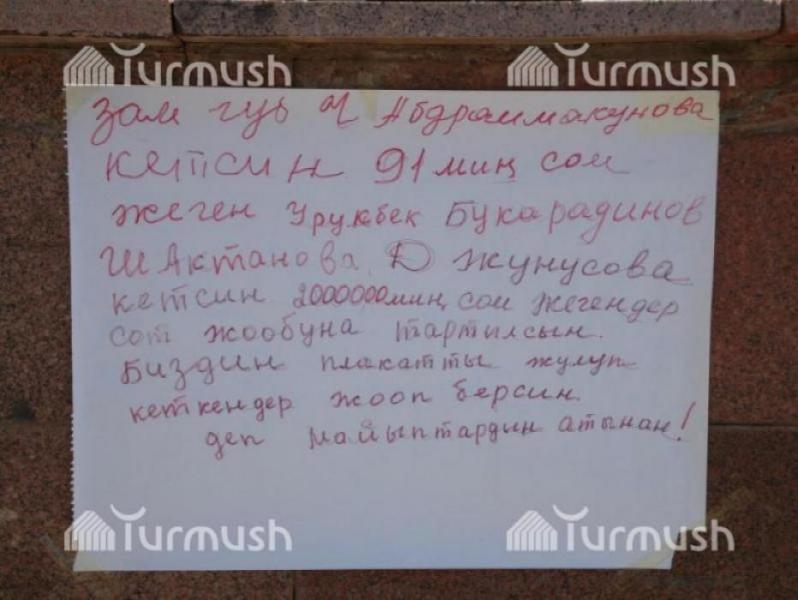 Turmush Turmush
зам губ Ч Абдраимакунова
кетсин 91 миң сом
жеген Урукбек Букарадинов
Ш Актанова, Джунусова
кетсин 2000000миң сом жегендер
сот жообуна тартылсын.
Биздин плакатты жулуп
кеткендер жооп берсин
деп майыптардин атынан!
Turmush Turmush